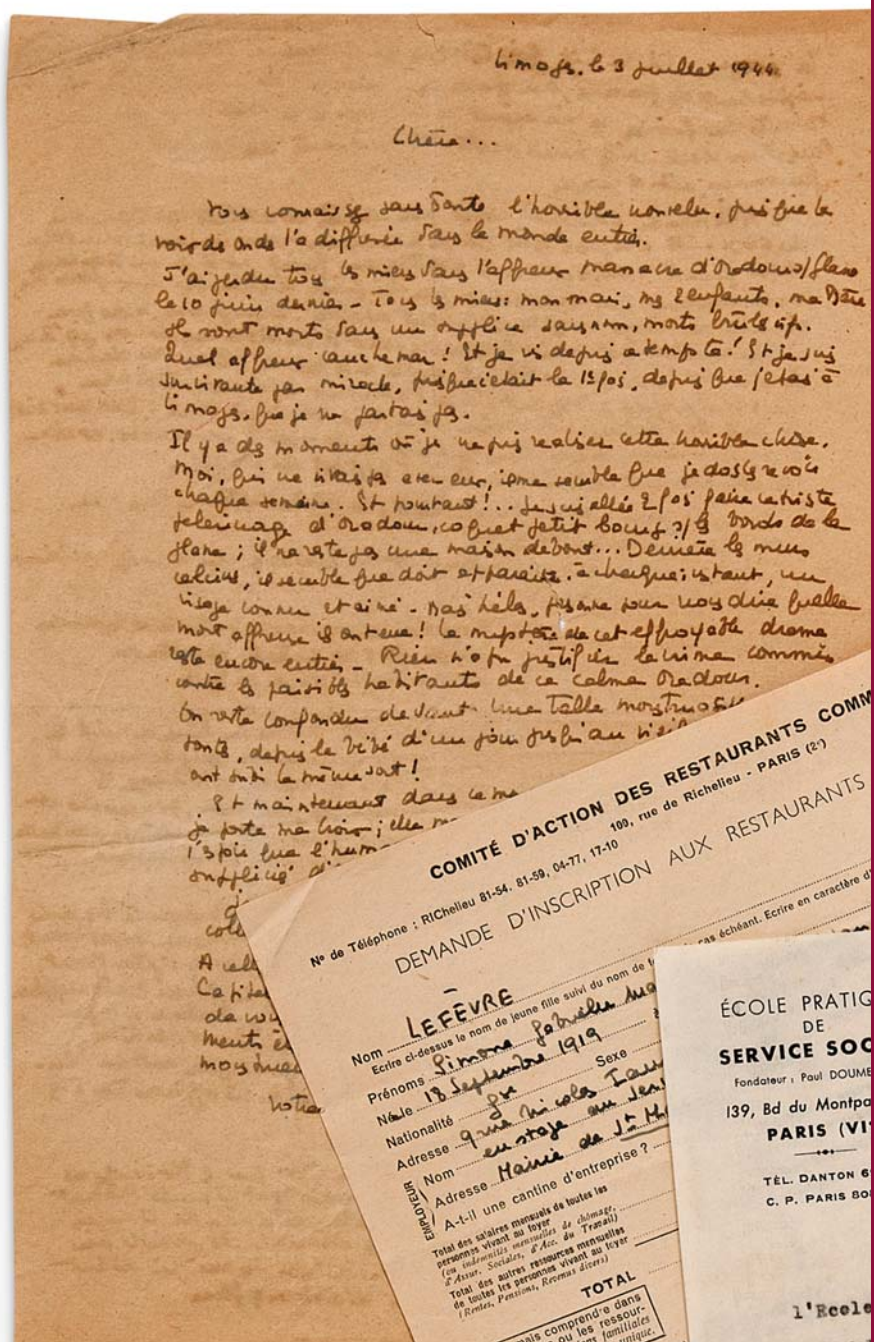 Limoges, le 3 juillet 1944
Chère...
Vous connaissez sans doute l'horrible nouvelle, puisque la
voix des ondes l'a diffusée dans le monde entier.
J'ai perdu tous les miens dans l'affreux massacre d'Oradour s/Glane
le 10 juin dernier - Tous les miens: mon mari, mes 2 enfants, ma Mère
ils sont morts dans un supplice sans nom, morts brûlés vifs.
Quel affreux cauchemar! Et je vis depuis ce temps là! Et je suis
survivante par miracle, puisque c'était la 1re fois, depuis que j'étais à
Limoges, que je ne partais pas.
Il y a des moments où je ne puis réaliser cette horrible chose.
Moi, qui ne vivais pas avec eux, il me semble que je dois les revoir
chaque semaine. Et pourtant!.. Je suis allée 2 fois faire ce triste
pèlerinage d'Oradour, coquet petit bourg s/les bords de la
Glane; il ne reste pas une maison debout... Derrière les murs
calcinés, il semble que doit apparaître, à chaque instant, un
visage connu et aimé - Mais hélas, personne pour nous dire quelle
mort affreuse ils ont eue! Le mystère de cet effroyable drame
reste encore entier - Rien n'a pu justifier le crime commis
contre les paisibles habitants de ce calme Oradour.
On reste confondu devant une telle
tous, depuis le bébé d'un jour jusqu'au
ont subi le même sort!
Et maintenant dans ce
je porte ma croix; elle
l'espoir que l'hum
supplicié
A
de
COMITÉ D'ACTION DES RESTAURANTS COMM
100, rue de Richelieu - PARIS (2e)
No de Téléphone : RIChelieu 81-54, 81-59, 04-77, 17-10
DEMANDE D'INSCRIPTION AUX RESTAURANTS
Nom LEFÈVRE
Ecrire ci-dessus le nom de jeune fille suivi du nom de cas échéant. Ecrire en caractère d'
Prénoms Simone Gabrielle Ma
Né le 18 Septembre 1919 à
Nationalité fse Sexe
Adresse 9 rue Nicolas
EMPLOYEUR
Nom en stage au
Adresse Mairie de St
A-t-il une cantine d'entreprise ?
Total des salaires mensuels de toutes les
personnes vivant au foyer
(ou indemnités mensuelles de chômage,
d'Assur. Sociales, d'Acc. du Travail)
Total des autres ressources mensuelles
de toutes les personnes vivant au foyer
(Rentes, Pensions, Revenus divers)
TOTAL
mais comprendre dans
ou les ressour-
familiales
unique.
ÉCOLE PRATIQ
DE
SERVICE SOC
Fondateur : Paul DOUME
139, Bd du Montpa
PARIS (VI
TÉL. DANTON 6
C. P. PARIS 80
l'Ecole